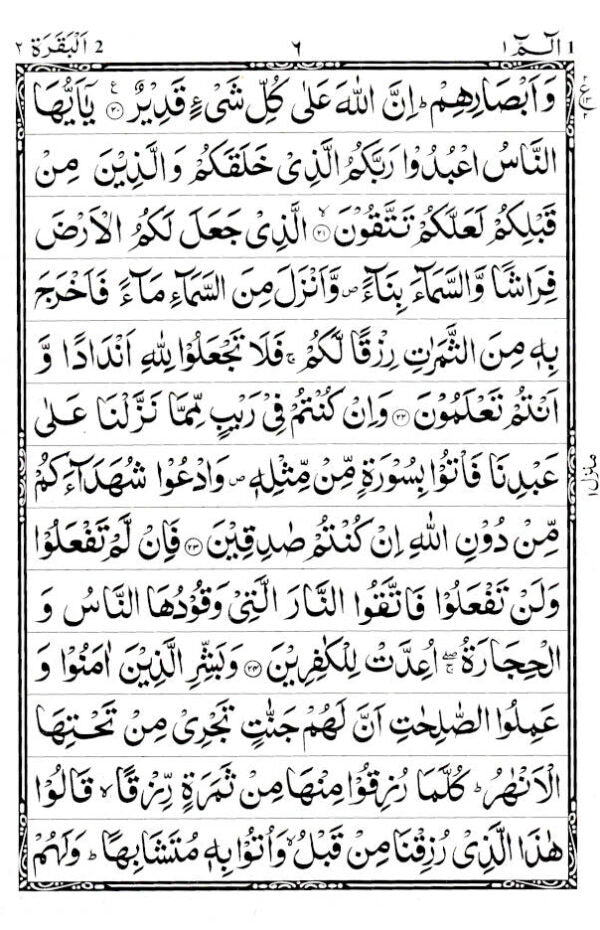 1 الٓـمّٓ ١ ٦ 2 اَلْبَقَرَة ٢
وَاَبْصَارِهِمْ ؕ اِنَّ اللّٰهَ عَلٰى كُلِّ شَىْءٍ قَدِيْرٌ ۟ ﴿۲۰﴾ ع يٰٓاَيُّهَا
النَّاسُ اعْبُدُوْا رَبَّكُمُ الَّذِىْ خَلَقَكُمْ وَالَّذِيْنَ مِنْ
قَبْلِكُمْ لَعَلَّكُمْ تَتَّقُوْنَ ۙ ﴿۲۱﴾ الَّذِىْ جَعَلَ لَكُمُ الْاَرْضَ
فِرَاشًا وَّالسَّمَآءَ بِنَآءً ص وَّاَنْزَلَ مِنَ السَّمَآءِ مَآءً فَاَخْرَجَ
بِهٖ مِنَ الثَّمَرٰتِ رِزْقًا لَّكُمْ ۚ فَلَا تَجْعَلُوْا لِلّٰهِ اَنْدَادًا وَّ
اَنْتُمْ تَعْلَمُوْنَ ﴿۲۲﴾ وَاِنْ كُنْتُمْ فِىْ رَيْبٍ مِّمَّا نَزَّلْنَا عَلٰى
عَبْدِنَا فَاْتُوْا بِسُوْرَةٍ مِّنْ مِّثْلِهٖ ص وَادْعُوْا شُهَدَآءَكُمْ
مِّنْ دُوْنِ اللّٰهِ اِنْ كُنْتُمْ صٰدِقِيْنَ ﴿۲۳﴾ فَاِنْ لَّمْ تَفْعَلُوْا
وَلَنْ تَفْعَلُوْا فَاتَّقُوا النَّارَ الَّتِىْ وَقُوْدُهَا النَّاسُ وَ
الْحِجَارَةُ ۖۚ اُعِدَّتْ لِلْكٰفِرِيْنَ ﴿۲۴﴾ وَبَشِّرِ الَّذِيْنَ اٰمَنُوْا وَ
عَمِلُوا الصّٰلِحٰتِ اَنَّ لَهُمْ جَنّٰتٍ تَجْرِىْ مِنْ تَحْتِهَا
الْاَنْهٰرُ ؕ كُلَّمَا رُزِقُوْا مِنْهَا مِنْ ثَمَرَةٍ رِّزْقًا ۙ قَالُوْا
هٰذَا الَّذِىْ رُزِقْنَا مِنْ قَبْلُ ۙ وَاُتُوْا بِهٖ مُتَشَابِهًا ؕ وَلَهُمْ
منزل ١